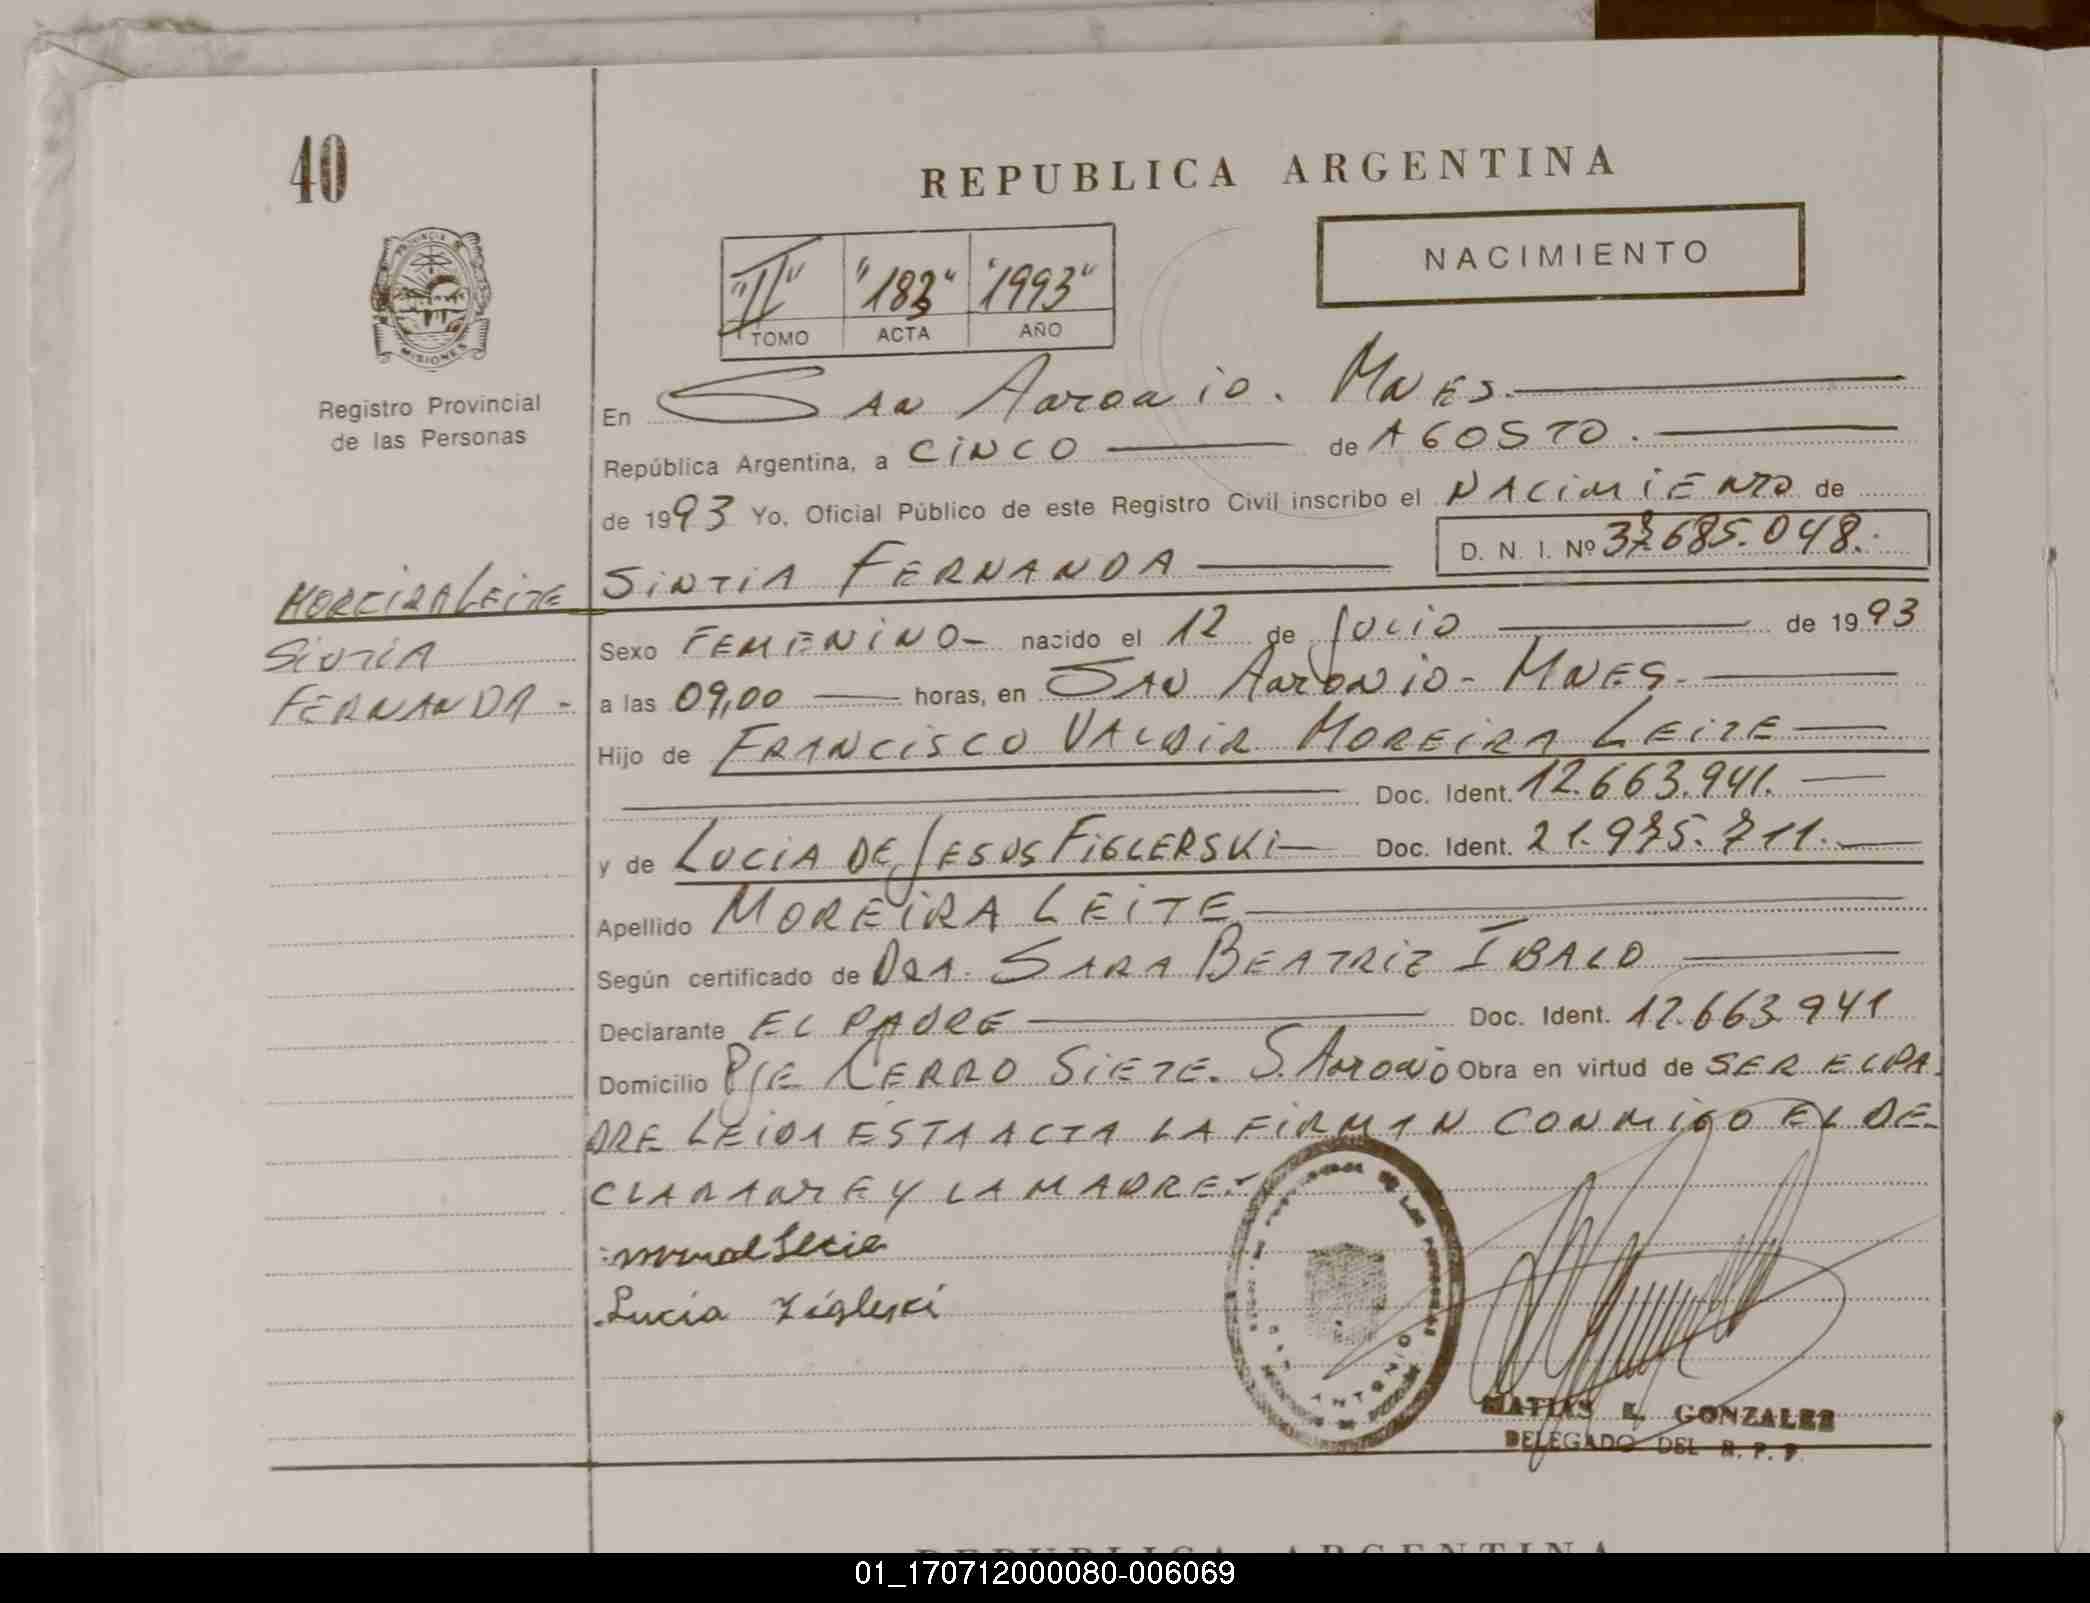 40
REPUBLICA ARGENTINA
NACIMIENTO
PROVINCIA DE
MISIONES
"II" "183" "1993"
TOMO ACTA AÑO
Registro Provincial
de las Personas
En SAN ANTONIO. MNES.
República Argentina, a CINCO de AGOSTO.
de 1993 Yo, Oficial Público de este Registro Civil inscribo el NACIMIENTO de
D. N. I. Nº 685.048.
MOREIRA LEITE
SINTIA
FERNANDA -
SINTIA FERNANDA
Sexo FEMENINO- nacido el 12 de JULIO de 1993
a las 09,00 horas, en SAN ANTONIO - MNES.
Hijo de FRANCISCO VALDIR MOREIRA LEITE
Doc. Ident. 12.663.941.
y de LUCIA DE JESUS FIGLERSKI Doc. Ident. 21.975.711.
Apellido MOREIRA LEITE
Según certificado de DRA. SARA BEATRIZ IBALO
Declarante EL PADRE Doc. Ident. 12.663.941
Domicilio PJE CERRO SIETE. S. ANTONIO Obra en virtud de SER EL PA-
DRE LEIDA ESTA ACTA LA FIRMAN CONMIGO EL DE-
CLARANTE Y LA MADRE.-
Lucia
MATIAS E. GONZALEZ
DELEGADO DEL R. P. P.
REPUBLICA ARGENTINA
01_170712000080-006069